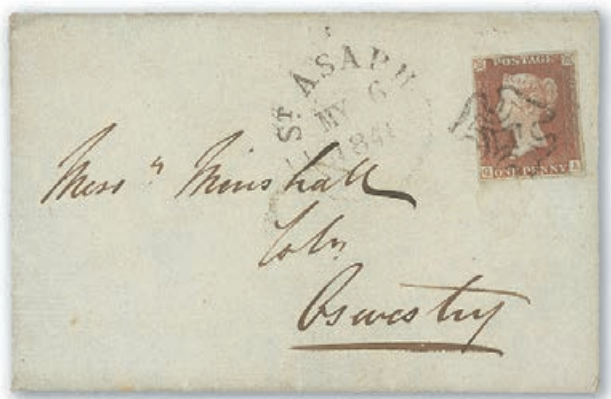 ST ASAPH
MY 6
1841
POSTAGE
ONE PENNY
Mess rs Minshall
Solrs
Oswestry